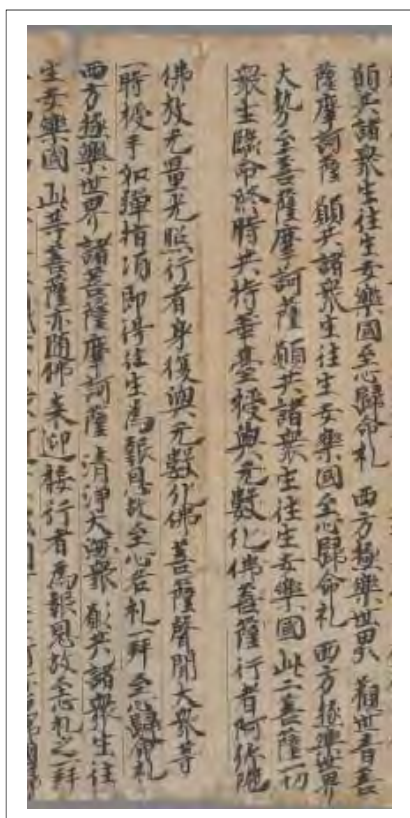 願共諸衆生往生安樂國至心歸命礼 西方極樂世界 觀世音菩
薩摩訶薩 願共諸衆生往生安樂國至心歸命礼 西方極樂世界
大勢至菩薩摩訶薩願共諸衆生往生安樂國 此二菩薩一切
衆生臨命終時共持華臺授與无數化佛菩薩行者阿弥陁
佛放无量光照行者身復與无數化佛 菩薩聲聞大衆等
一時授手如彈指頃即得往生爲報恩故至心各礼一拜至心歸命礼
西方極樂世界諸菩薩摩訶薩 清淨大海衆 願共諸衆生往
生安樂國 此等菩薩亦隨佛来迎接行者爲報恩故至心礼之一拜